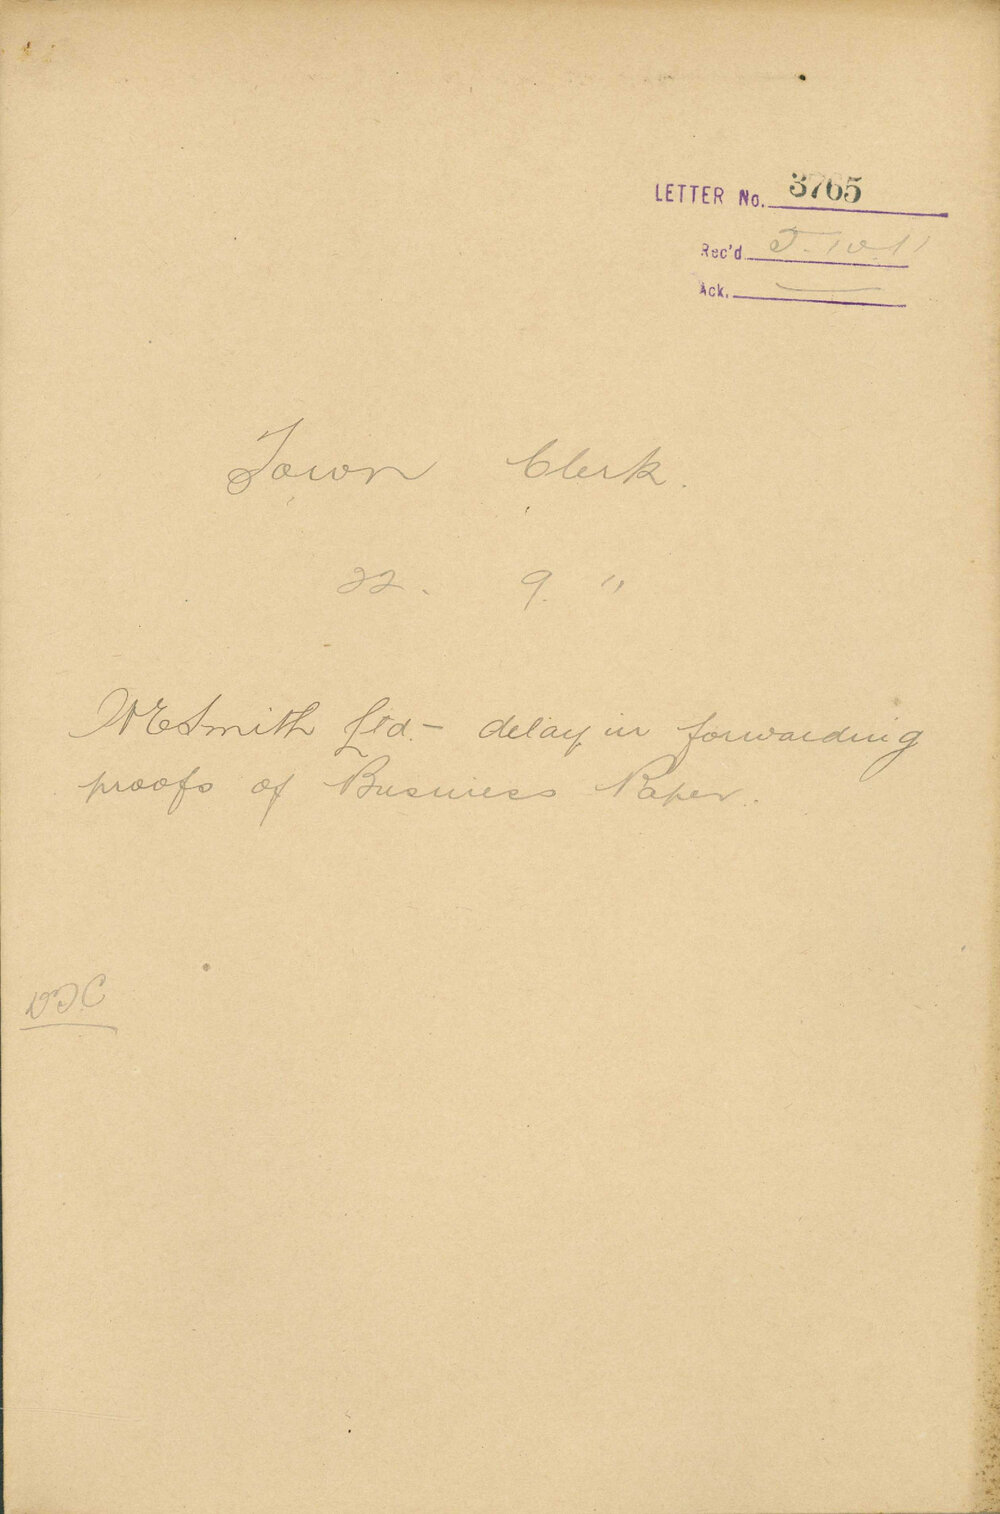 LETTER No. 3765
Rec'd 5.10.11
Ack. —
Town Clerk.
22. 9. 11
W E Smith Ltd. – delay in forwarding
proofs of Business Paper.